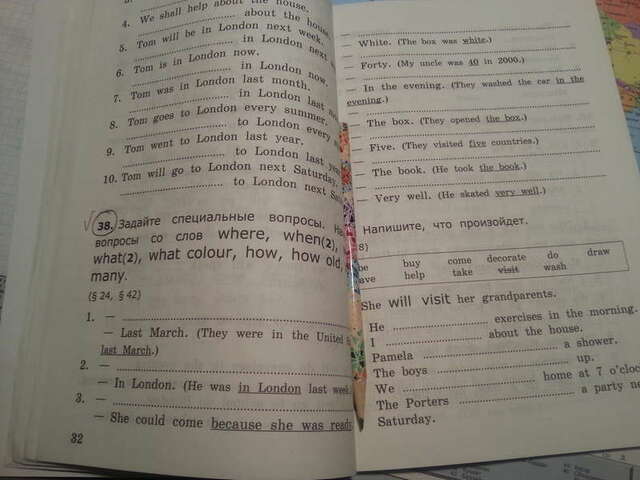 3.
4. We shall help about the house.
about the house
5. Tom will be in London next week.
in London next
6. Tom is in London now.
in London now.
7. Tom was in London last month.
in London last
8. Tom goes to London every summer.
to London every
9. Tom went to London last year.
to London last year
10. Tom will go to London next Saturday.
to London next
38. Задайте специальные вопросы.
вопросы со слов where, when(2),
what(2), what colour, how, how old,
many.
(§ 24, § 42)
1. —
— Last March. (They were in the United
last March.)
2. —
— In London. (He was in London last week.
3. —
— She could come because she was
32
— White. (The box was white.)
— Forty. (My uncle was 40 in 2000.)
— In the evening. (They washed the car in the
evening.)
— The box. (They opened the box.)
— Five. (They visited five countries.)
— The book. (He took the book.)
— Very well. (He skated very well.)
Напишите, что произойдет.
8)
be buy come decorate do draw
ave help take visit wash
She will visit her grandparents.
He ........ exercises in the morning.
I ........ about the house.
Pamela ........ a shower.
The boys ........ up.
We ........ home at 7 o'cloc
The Porters ........ a party
Saturday.